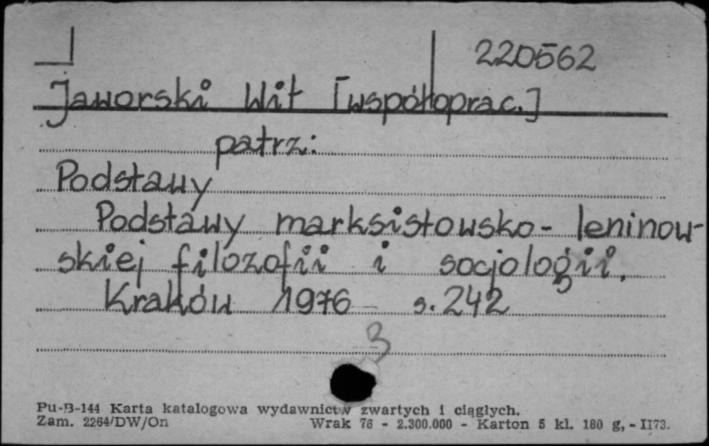 220562
Jaworski Wit [współoprac.]
patrz:
Podstawy
Podstawy marksistowsko-leninow-
skiej filozofii i socjologii.
Kraków 1976 s. 242
3
Pu-B-144 Karta katalogowa wydawnictw zwartych i ciągłych.
Zam. 2264/DW/On Wrak 76 - 2.300.000 - Karton 5 kl. 180 g, - II73.